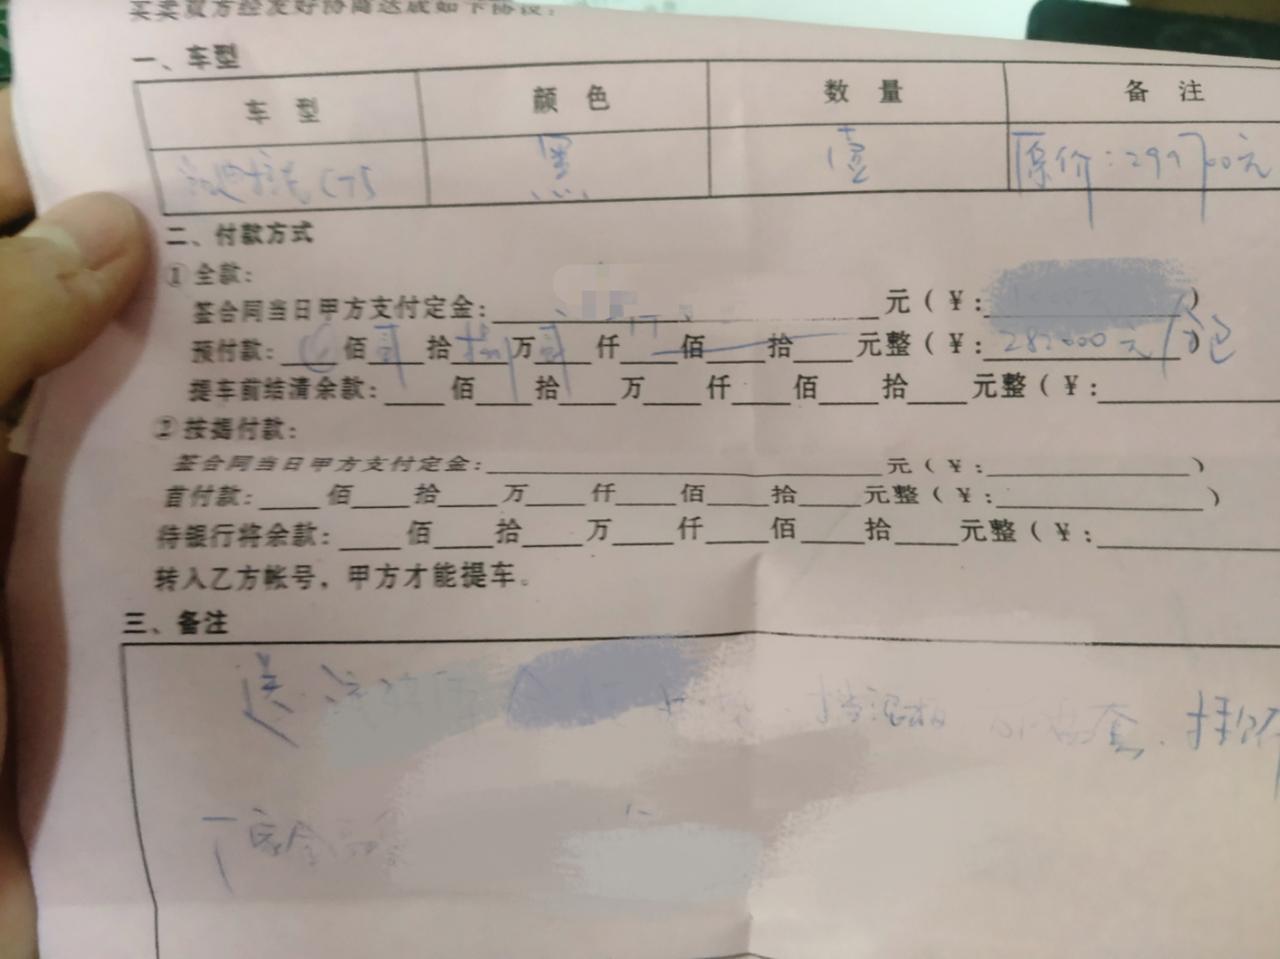 买卖双方经友好协商达成如下协议:
一、车型
车 型 颜 色 数 量 备 注
CT5 黑 壹 原价:299700元
二、付款方式
①全款:
签合同当日甲方支付定金: 元(¥: )
预付款: 佰贰拾捌万贰仟 佰 拾 元整(¥:282000元)
提车前结清余款: 佰 拾 万 仟 佰 拾 元整(¥:
②按揭付款:
签合同当日甲方支付定金: 元(¥: )
首付款: 佰 拾 万 仟 佰 拾 元整(¥: )
待银行将余款: 佰 拾 万 仟 佰 拾 元整(¥:
转入乙方帐号,甲方才能提车。
三、备注
送 挡泥板 套.